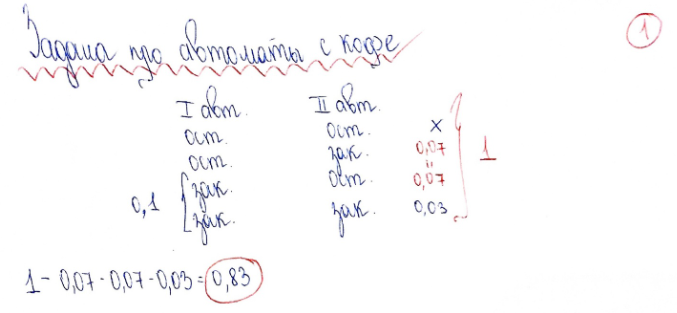 Задача про автоматы с кофе
1
I авт. II авт.
ост. ост. x
ост. зак. 0,07
"
зак. ост. 0,07
зак. зак. 0,03
0,1
1
1 - 0,07 - 0,07 - 0,03 = 0,83